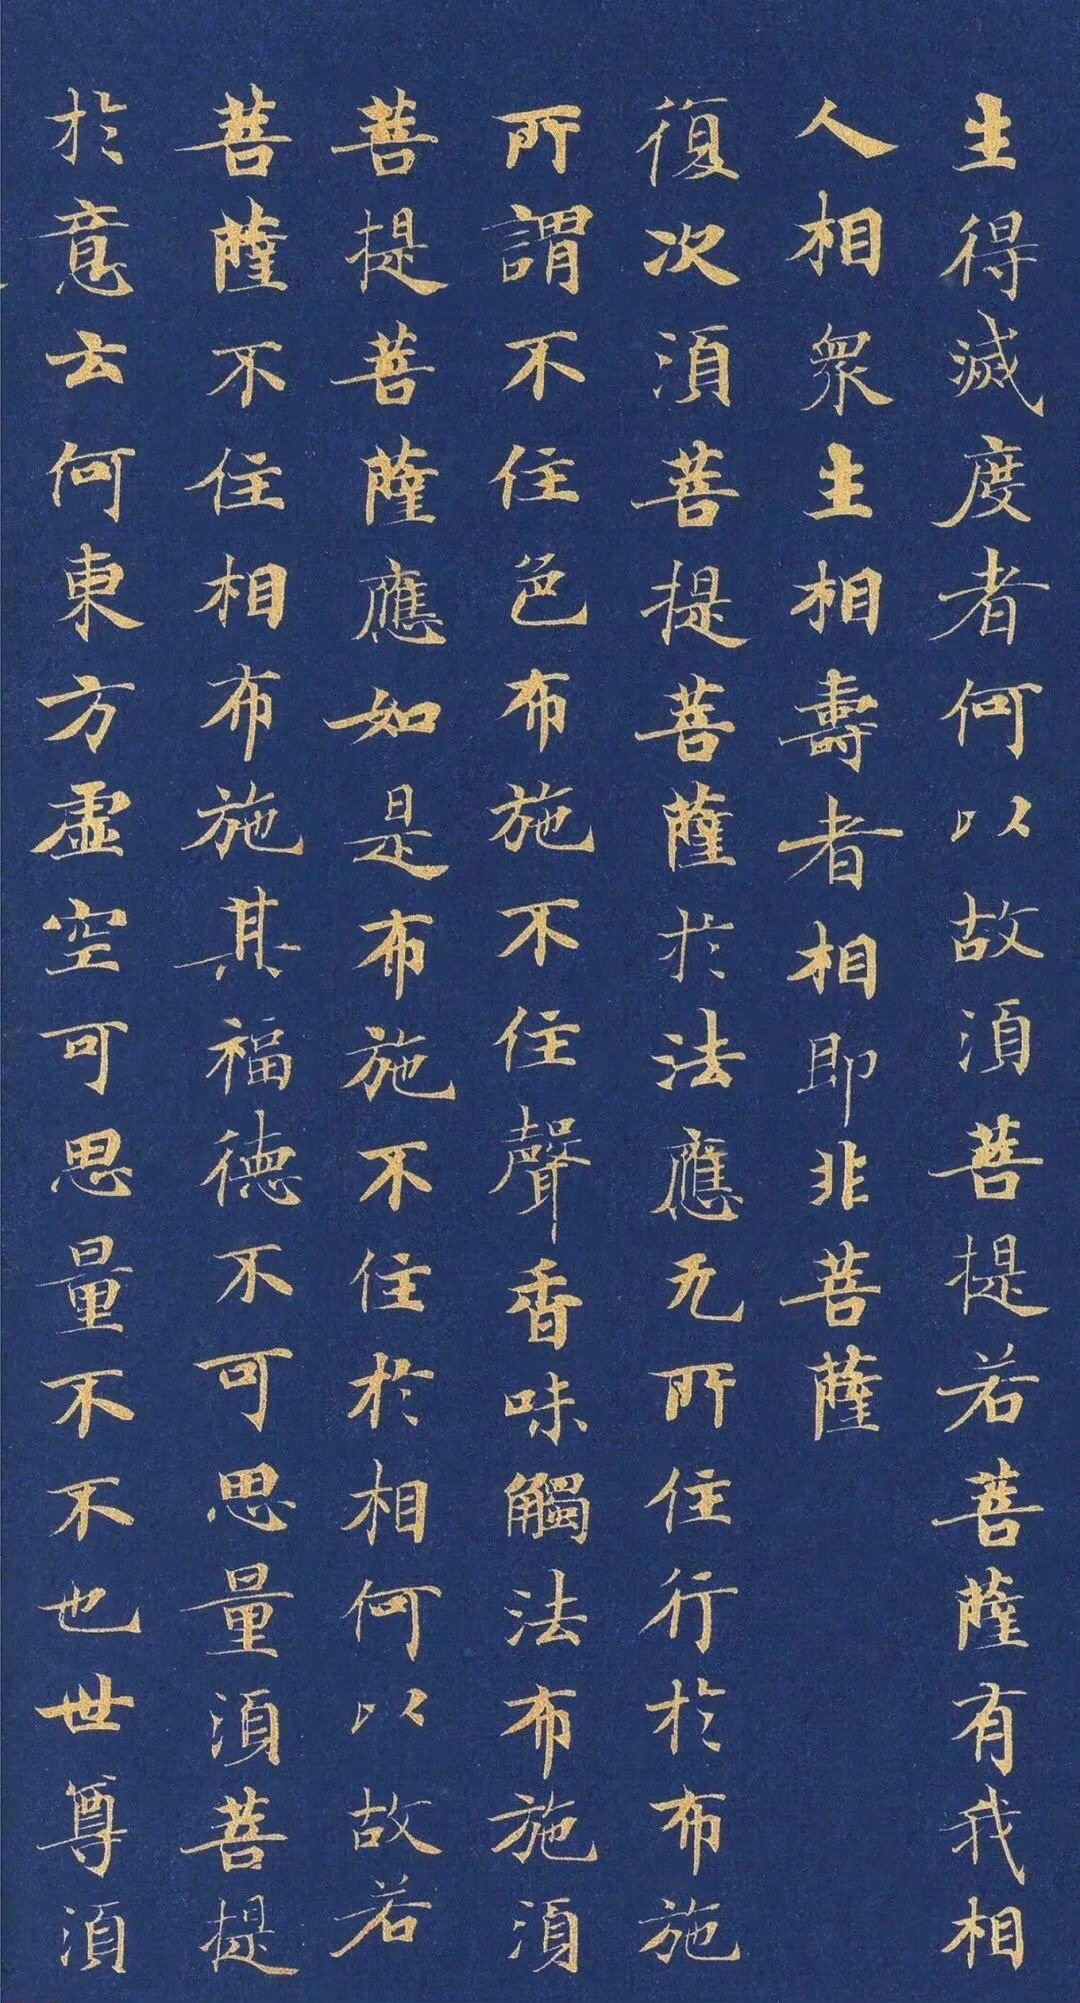 生得滅度者何以故湏菩提若菩薩有我相
人相衆生相壽者相即非菩薩
復次湏菩提菩薩於法應无所住行於布施
所謂不住色布施不住聲香味觸法布施湏
菩提菩薩應如是布施不住於相何以故若
菩薩不住相布施其福德不可思量湏菩提
於意云何東方虛空可思量不不也世尊湏